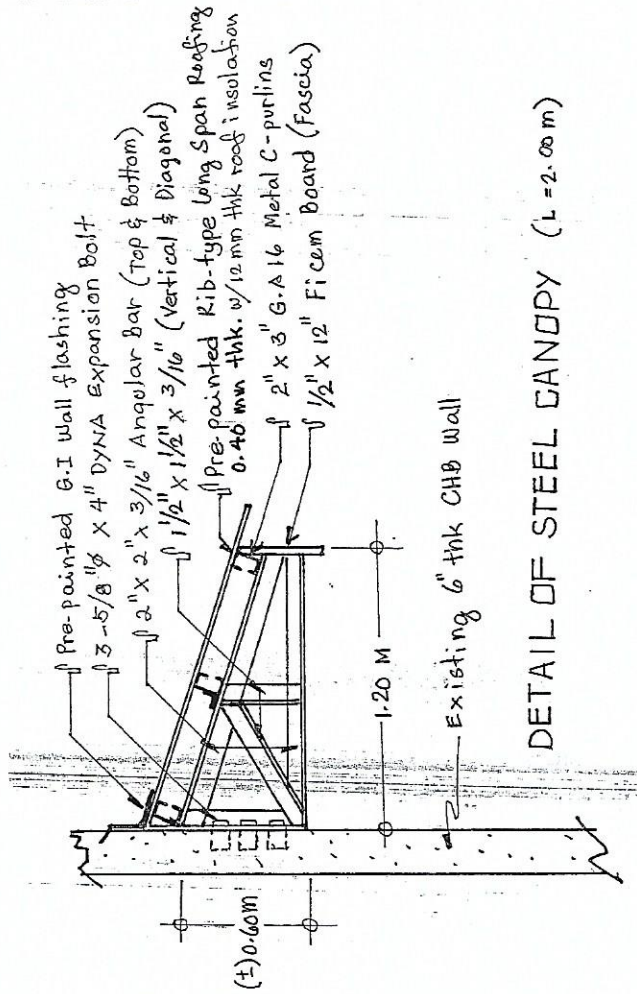 Pre-painted G.I Wall flashing
3-5/8"φ x 4" DYNA Expansion Bolt
2" x 2" x 3/16" Angular Bar (Top & Bottom)
1 1/2" x 1 1/2" x 3/16" (Vertical & Diagonal)
Pre-painted Rib-type Long Span Roofing
0.40 mm thk. w/12 mm thk roof insulation
2" x 3" G.A 16 Metal C-purlins
1/2" x 12" Ficem Board (Fascia)
(±) 0.60M
1.20 M
Existing 6" thk CHB Wall
DETAIL OF STEEL CANOPY (L = 2.00 m)